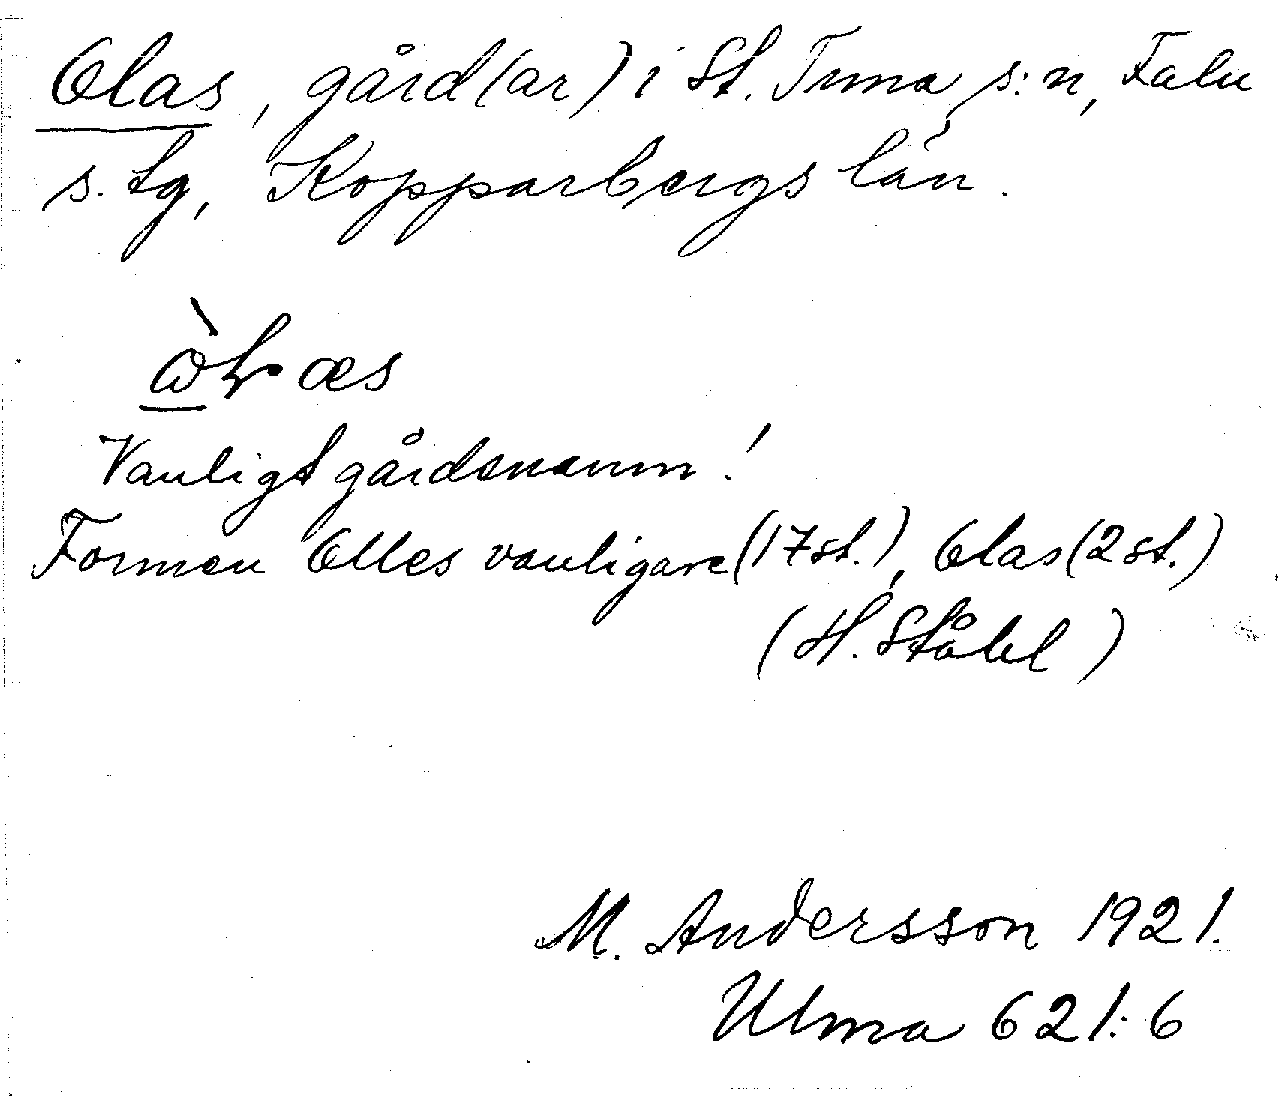 Olas, gård(ar) i St. Tuna s:n, Falu
s. tg, Kopparbergs län.
Vanligt gårdsnamn!
Formen Olles vanligare (17 st.), Olas (2 st.)
(H. Ståhl)
M. Andersson 1921.
Ulma 621:6